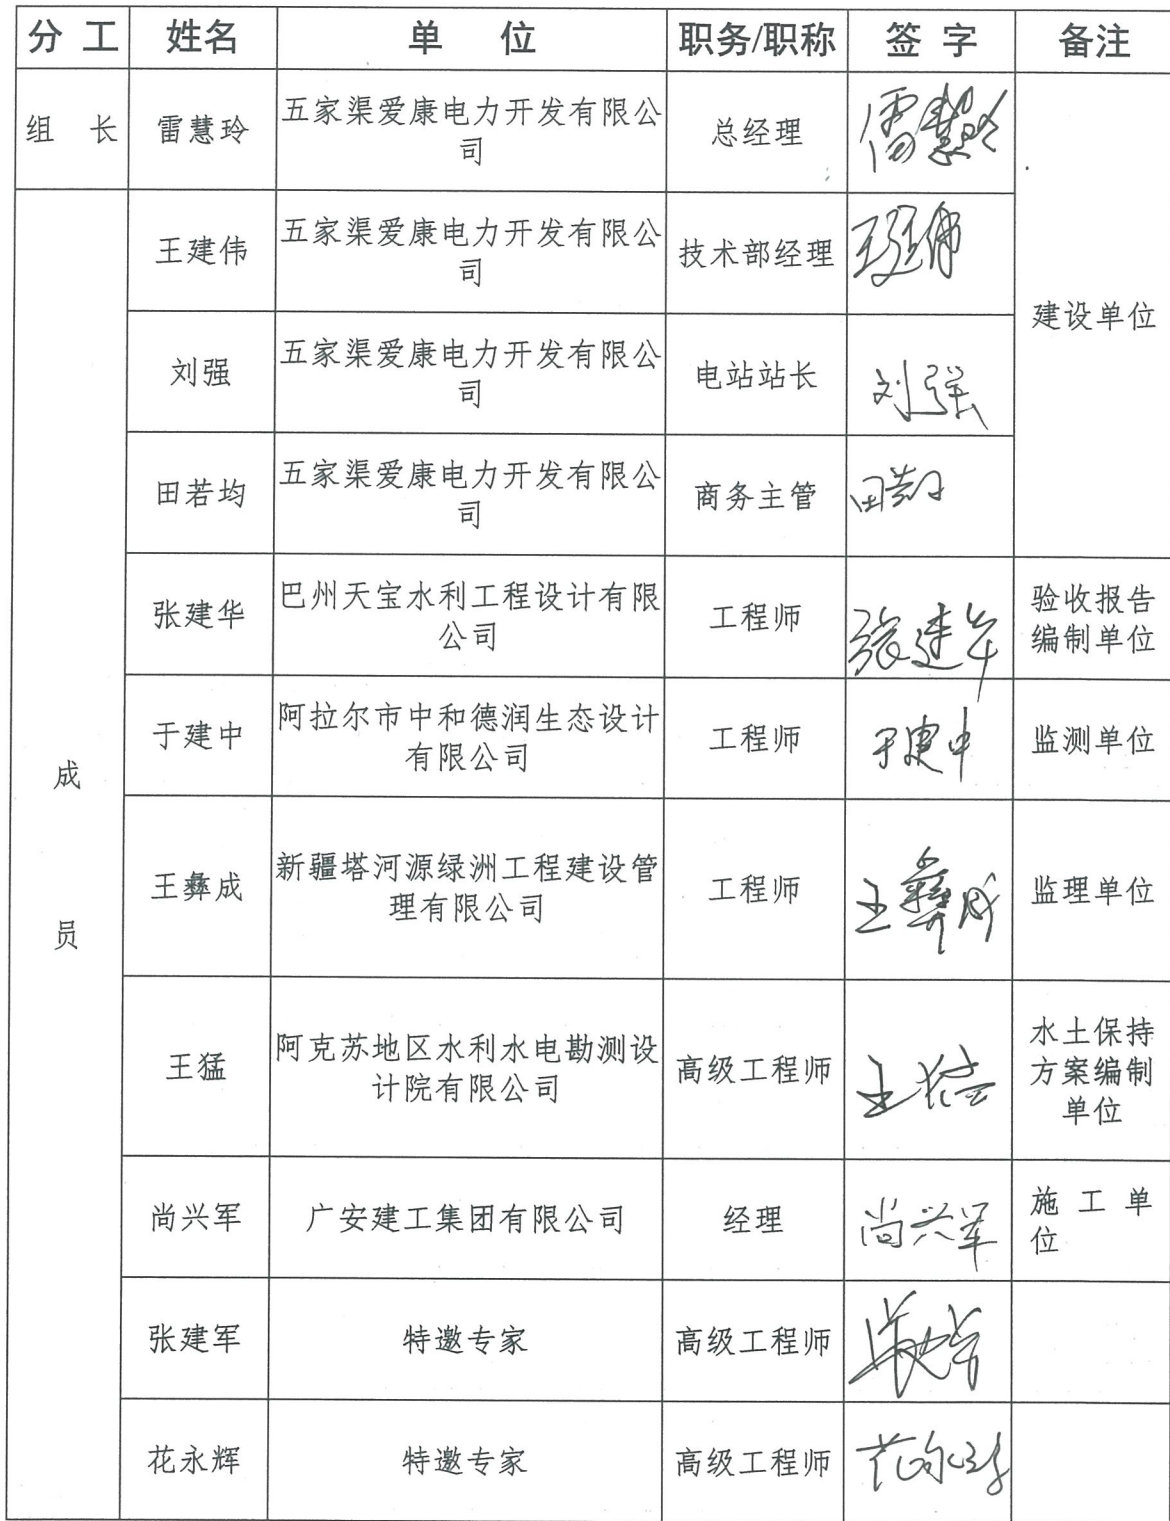 分 工 姓名 单 位 职务/职称 签 字 备注
组 长 雷慧玲 五家渠爱康电力开发有限公
司 总经理 雷慧玲
王建伟 五家渠爱康电力开发有限公
司 技术部经理 王建伟
建设单位
刘强 五家渠爱康电力开发有限公
司 电站站长 刘强
田若均 五家渠爱康电力开发有限公
司 商务主管 田若均
张建华 巴州天宝水利工程设计有限
公司 工程师 张建华 验收报告
编制单位
成
员
于建中 阿拉尔市中和德润生态设计
有限公司 工程师 于建中 监测单位
王彝成 新疆塔河源绿洲工程建设管
理有限公司 工程师 王彝成 监理单位
王猛 阿克苏地区水利水电勘测设
计院有限公司 高级工程师 王猛 水土保持
方案编制
单位
尚兴军 广安建工集团有限公司 经理 尚兴军 施 工 单
位
张建军 特邀专家 高级工程师
花永辉 特邀专家 高级工程师 花永辉